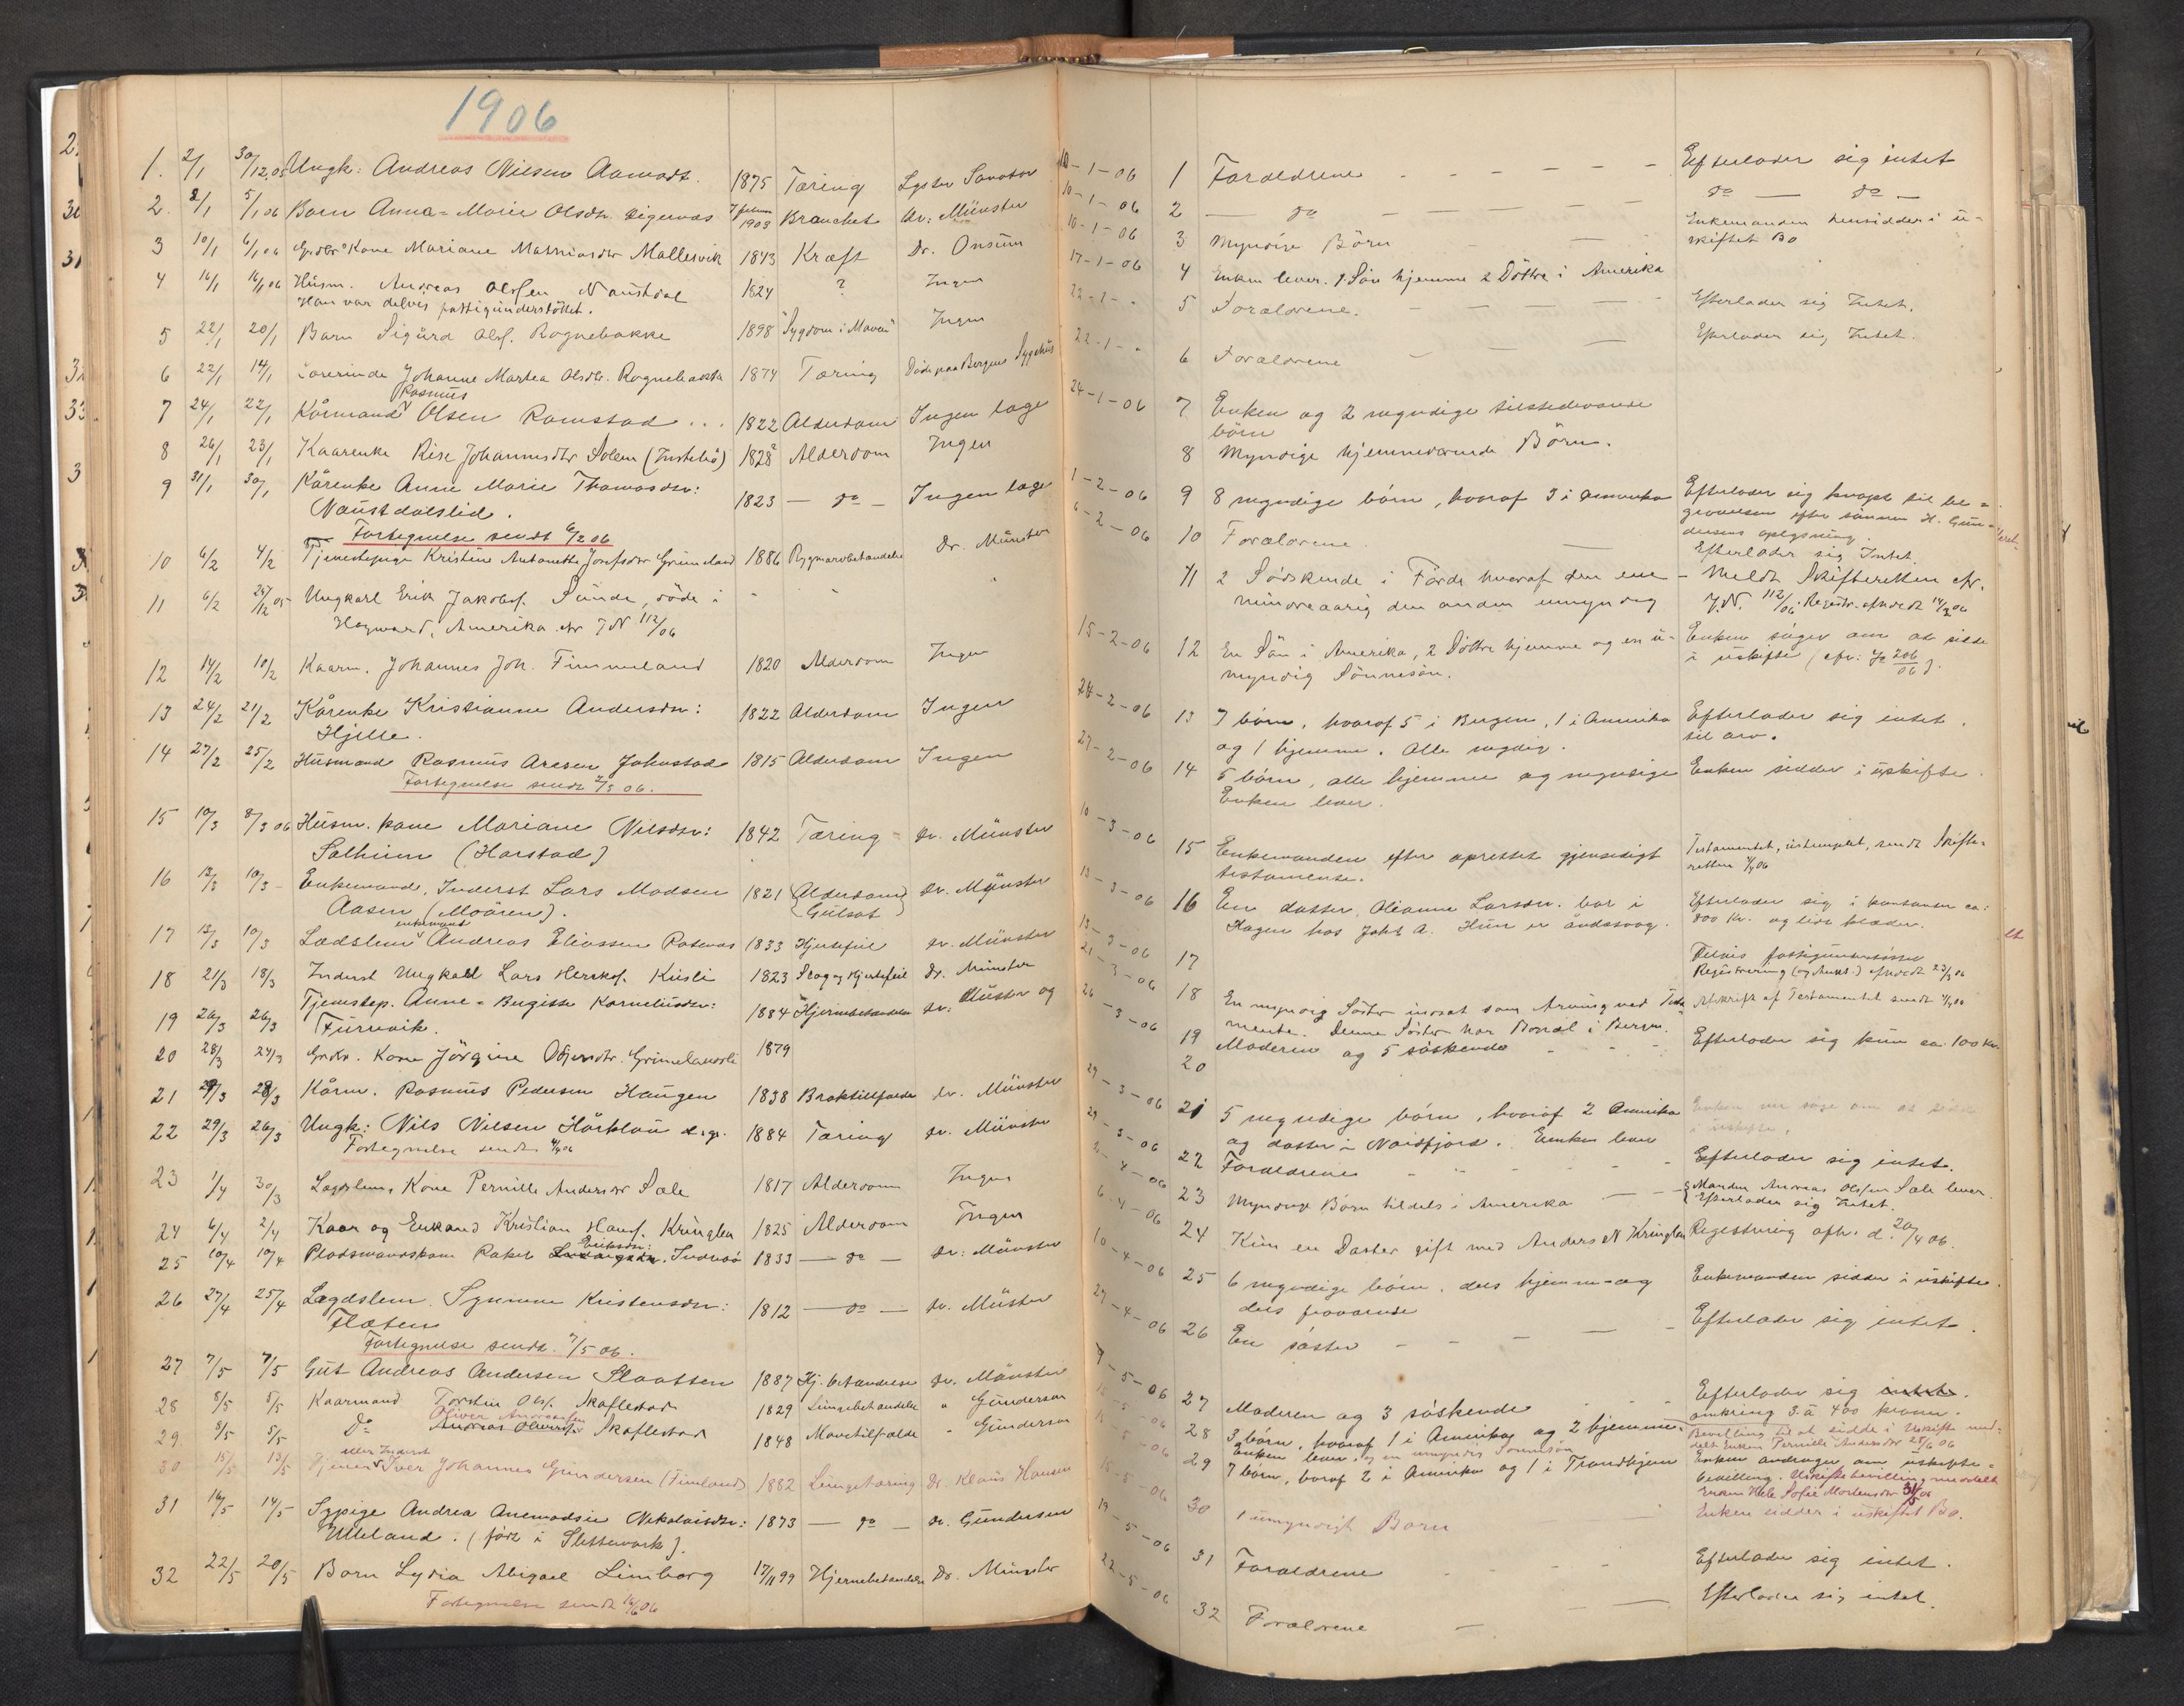 1906
1. 2/1 30/12.05 Ungk: Andreas Nilsen Aamodt. 1875 Tæring Lyster Sanator
2. 2/1 5/1 06 Barn Anna-Marie Olsdtr. 7 februar 1903 Dr: Münster
3 10/1 6/1 06 Grdbr Kone Mariane Mathiasdtr 1843 Kræft Dr. Onsum
4 16/1 16/1 06 Husm. Andreas Olssen Naustdal 1824 ? Ingen
Han var delvis fattigunderstöttet.
5 22/1 20/1 Barn Sigurd Olss. Rognebakke 1898 "Sygdom i Maven" Ingen
6 22/1 14/1 Lærerinde Johanne Martea Olsdtr. Rognebakke 1874 Tæring Döde paa Bergens Sygehus
Rasmus
7 24/1 22/1 Kårmand Olsen Ramstad ... 1822 Alderdom Ingen læge
8 26/1 23/1 Kaarenke Johannesdtr Solem 1828 Alderdom Ingen
9 31/1 30/1 Kårenke Anne Marie Thomasdtr: 1823 — do — Ingen læge
Naustdalslid.
Fortegnelse sendt 6/2 06
10 6/2 4/2 Tjenestepige Kristine Antonette Josefsdtr Grimeland 1886 Dr. Münster
11 6/2 26/12 05 Ungkarl Erik Jakobs. Sunde, döde i
Hayward, Amerika cfr JN 112/06
12 14/2 10/2 Kaarm. Johannes Joh. Fimmeland 1820 Alderdom Ingen
13 24/2 21/2 Kårenke Kristianne Andersdtr: 1822 Alderdom Ingen
Hjelle.
14 27/2 25/2 Husmand Rasmus Aresen Johnstad 1815 Alderdom Ingen
Fortegnelse sendt 2/3 06.
15 10/3 8/3 06 Husm. kone Mariane Nilsdtr: 1842 Tæring Dr. Münster
Solheim (Harstad)
16 13/3 10/3 Enkemand, Inderst Lars Madsen 1821 (Alderdom) Dr. Münster
Aasen (Moåren). (Gulsot
enkemand
17 13/3 10/3 Lædslem Andreas Eliassen 1833 Hjertefeil Dr. Münster
18 21/3 18/3 Inderst Ungkarl Lars 1823 Slag og Hjertefeil Dr. Münster
19 26/3 26/3 Tjenestep. Anne-Birgitte Korneliusdtr: 1884 Hjernebetændelse Dr: Münster og
Furevik.
20 28/3 24/3 Grdbr. Kone Jörgine 1879
21 29/3 28/3 Kårm. Rasmus Pedersen Haugen 1838 Braktilfælde Dr. Münster
22 29/3 26/3 Ungk: Nils Nilsen 1884 Tæring Dr. Münster
Fortegnelse sendt 4/4 06
23 1/4 30/3 Lægdslems Kone Pernille Andersdtr Sæle 1817 Alderdom Ingen
24 6/4 2/4 Kaar og Enkemd Kristian Hans. Kringlen 1825 Alderdom Ingen
Eriksdtr:
25 10/4 10/4 Pladsmandskone Rakel Indrebö 1833 — do — Dr: Münster
26 27/4 25/4 Lægdslem. Synneve Kristensdtr: 1812 — do — Dr. Münster
Flaten
Fortegnelse sendt. 7/5 06.
27 7/5 7/5 Gut Andreas Andersen Slaatten 1887 Hj. betændelse Dr. Münster
28 8/5 5/5 Kaarmand Torstein Ols. Skaflestad 1829 Lungebetændelse " Gundersen
Oliver Andreassen
29 8/5 5/5 Do Skaflestad 1848 Mavetilfælde " Gundersen
eller Inderst
30 15/5 13/5 Tjener Iver Johannes Gundersen (Fimland) 1882 Lungetæring Dr. Klaus Hansen
31 16/5 14/5 Sypige Andrea Nikolaisdtr: 1873 — do — Dr. Gundersen
Ulleland.
32 22/5 20/5 Barn Lydia Abigael Limborg 17/11 99 Hjernebetændelse Dr. Münster
Fortegnelse sendt 16/6 06
10-1-06 1 Forældrene - - - Efterlader sig intet
10-1-06 2 — do — do — do —
10-1-06 3 Myndige Börn Enkemanden hensidder i u-
skiftet Bo
17-1-06 4 Enken lever. 1 Sön hjemme 2 Döttre i Amerika
22-1- " 5 Forældrene. Efterlader sig Intet.
22-1- " 6 Forældrene Efterlader sig Intet.
24-1-06 7 Enken og 2 myndige tilstedeværende
börn
8 Myndige hjemmeværende Börn.
1-2-06 9 8 myndige börn, hvoraf 3 i Amerika Efterlader sig knapt til be-
gravelsen efter sönnen H. Gun-
dersens oplysning.
6-2-06 10 Forældrene Efterlader sig Intet.
11 2 Södskende i Förde hvoraf den ene - Meldt Skifteretten cfr.
mindreaarig den anden umyndig J.N. 112/06. Registr. afholdt 14/2 06
15-2-06 12 En Sön i Amerika, 2 Döttre hjemme og en u- Enken söger om at sidde
myndig Sönnesön. i uskifte (cfr: Js 206/06).
24-2-06 13 7 börn, hvoraf 5 i Bergen, 1 i Amerika Efterlader sig intet
og 1 hjemme. Alle myndig. til arv.
27-2-06 14 5 börn, alle hjemme og myndige Enken sidder i uskifte.
Enken lever.
10-3-06 15 Enkemanden efter oprettet gjensidigt Testamentet, ustemplet, sendt Skifte-
testamente. retten
13-3-06 16 En datter, Oleanne Larsdtr. bor i Efterlader sig i kontanter ca:
Hagen hos Johs A. Hun er åndssvag. 800 Kr. og lidt klæder.
13-3-06 17 Delvis fattigunderstöttet
21-3-06 18 En myndig Söster indsat som Arving ved Testa- Registrering afholdt 23/3 06
mente. Denne Söster har Bopæl i Bergen. Afskrift af Testamentet sendt
26-3-06 19 Moderen og 5 söskende Efterlader sig kun ca. 100 Kr.
20
29-3-06 21 5 myndige börn, hvoraf 2 Amerika Enken vil söge om at sidde
og datter i Nordfjord. Enken lever i uskifte.
29-3-06 22 Forældrene Efterlader sig intet.
2-4-06 23 Myndige Börn tildels i Amerika Manden Andreas Olssen Sæle lever.
Efterlader sig Intet.
6-4-06 24 Kun en Datter gift med Anders N Kringlen Registrering afh. d. 20/4 06.
10-4-06 25 6 myndige börn, dels hjemme og Enkemanden sidder i uskifte.
dels fraværende
27-4-06 26 En söster Efterlader sig intet.
9-5-06 27 Moderen og 3 söskende Efterlader sig intet.
omkring 3 à 400 kroner.
15-5-06 28 3 börn, hvoraf 1 i Amerika og 2 hjemme. Bevilling til at sidde i Uskifte med-
enken lever, og en umyndig Sönnesön delt Enken Pernille Andersdtr 28/6 06
15-5-06 29 7 börn, hvoraf 2 i Amerika og 1 i Trondhjem Enken andrager om uskifte-
bevilling. Uskiftebevilling meddelt
Enken Sofie Mortensdtr 31/5 06
15-5-06 30 1 umyndigt Barn Enken sidder i uskiftet Bo.
19-5-06 31 Forældrene Efterlader sig intet.
22-5-06 32 Forældrene Efterlader sig intet.